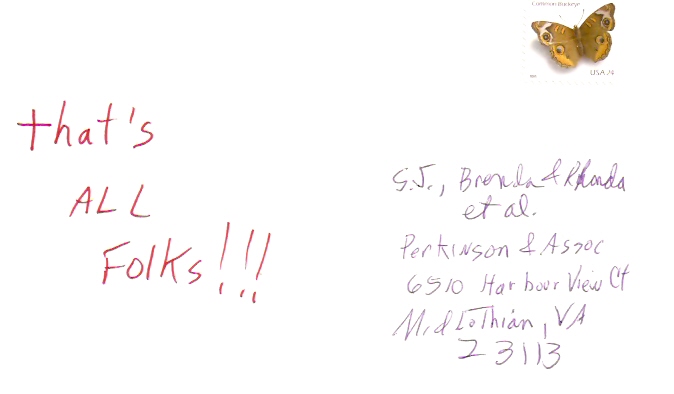 Common Buckeye
USA 24
that's
ALL
FOLKS!!!
S.J., Brenda & Rhonda
et al.
Perkinson & Assoc
6510 Harbour View Ct
Midlothian, VA
23113